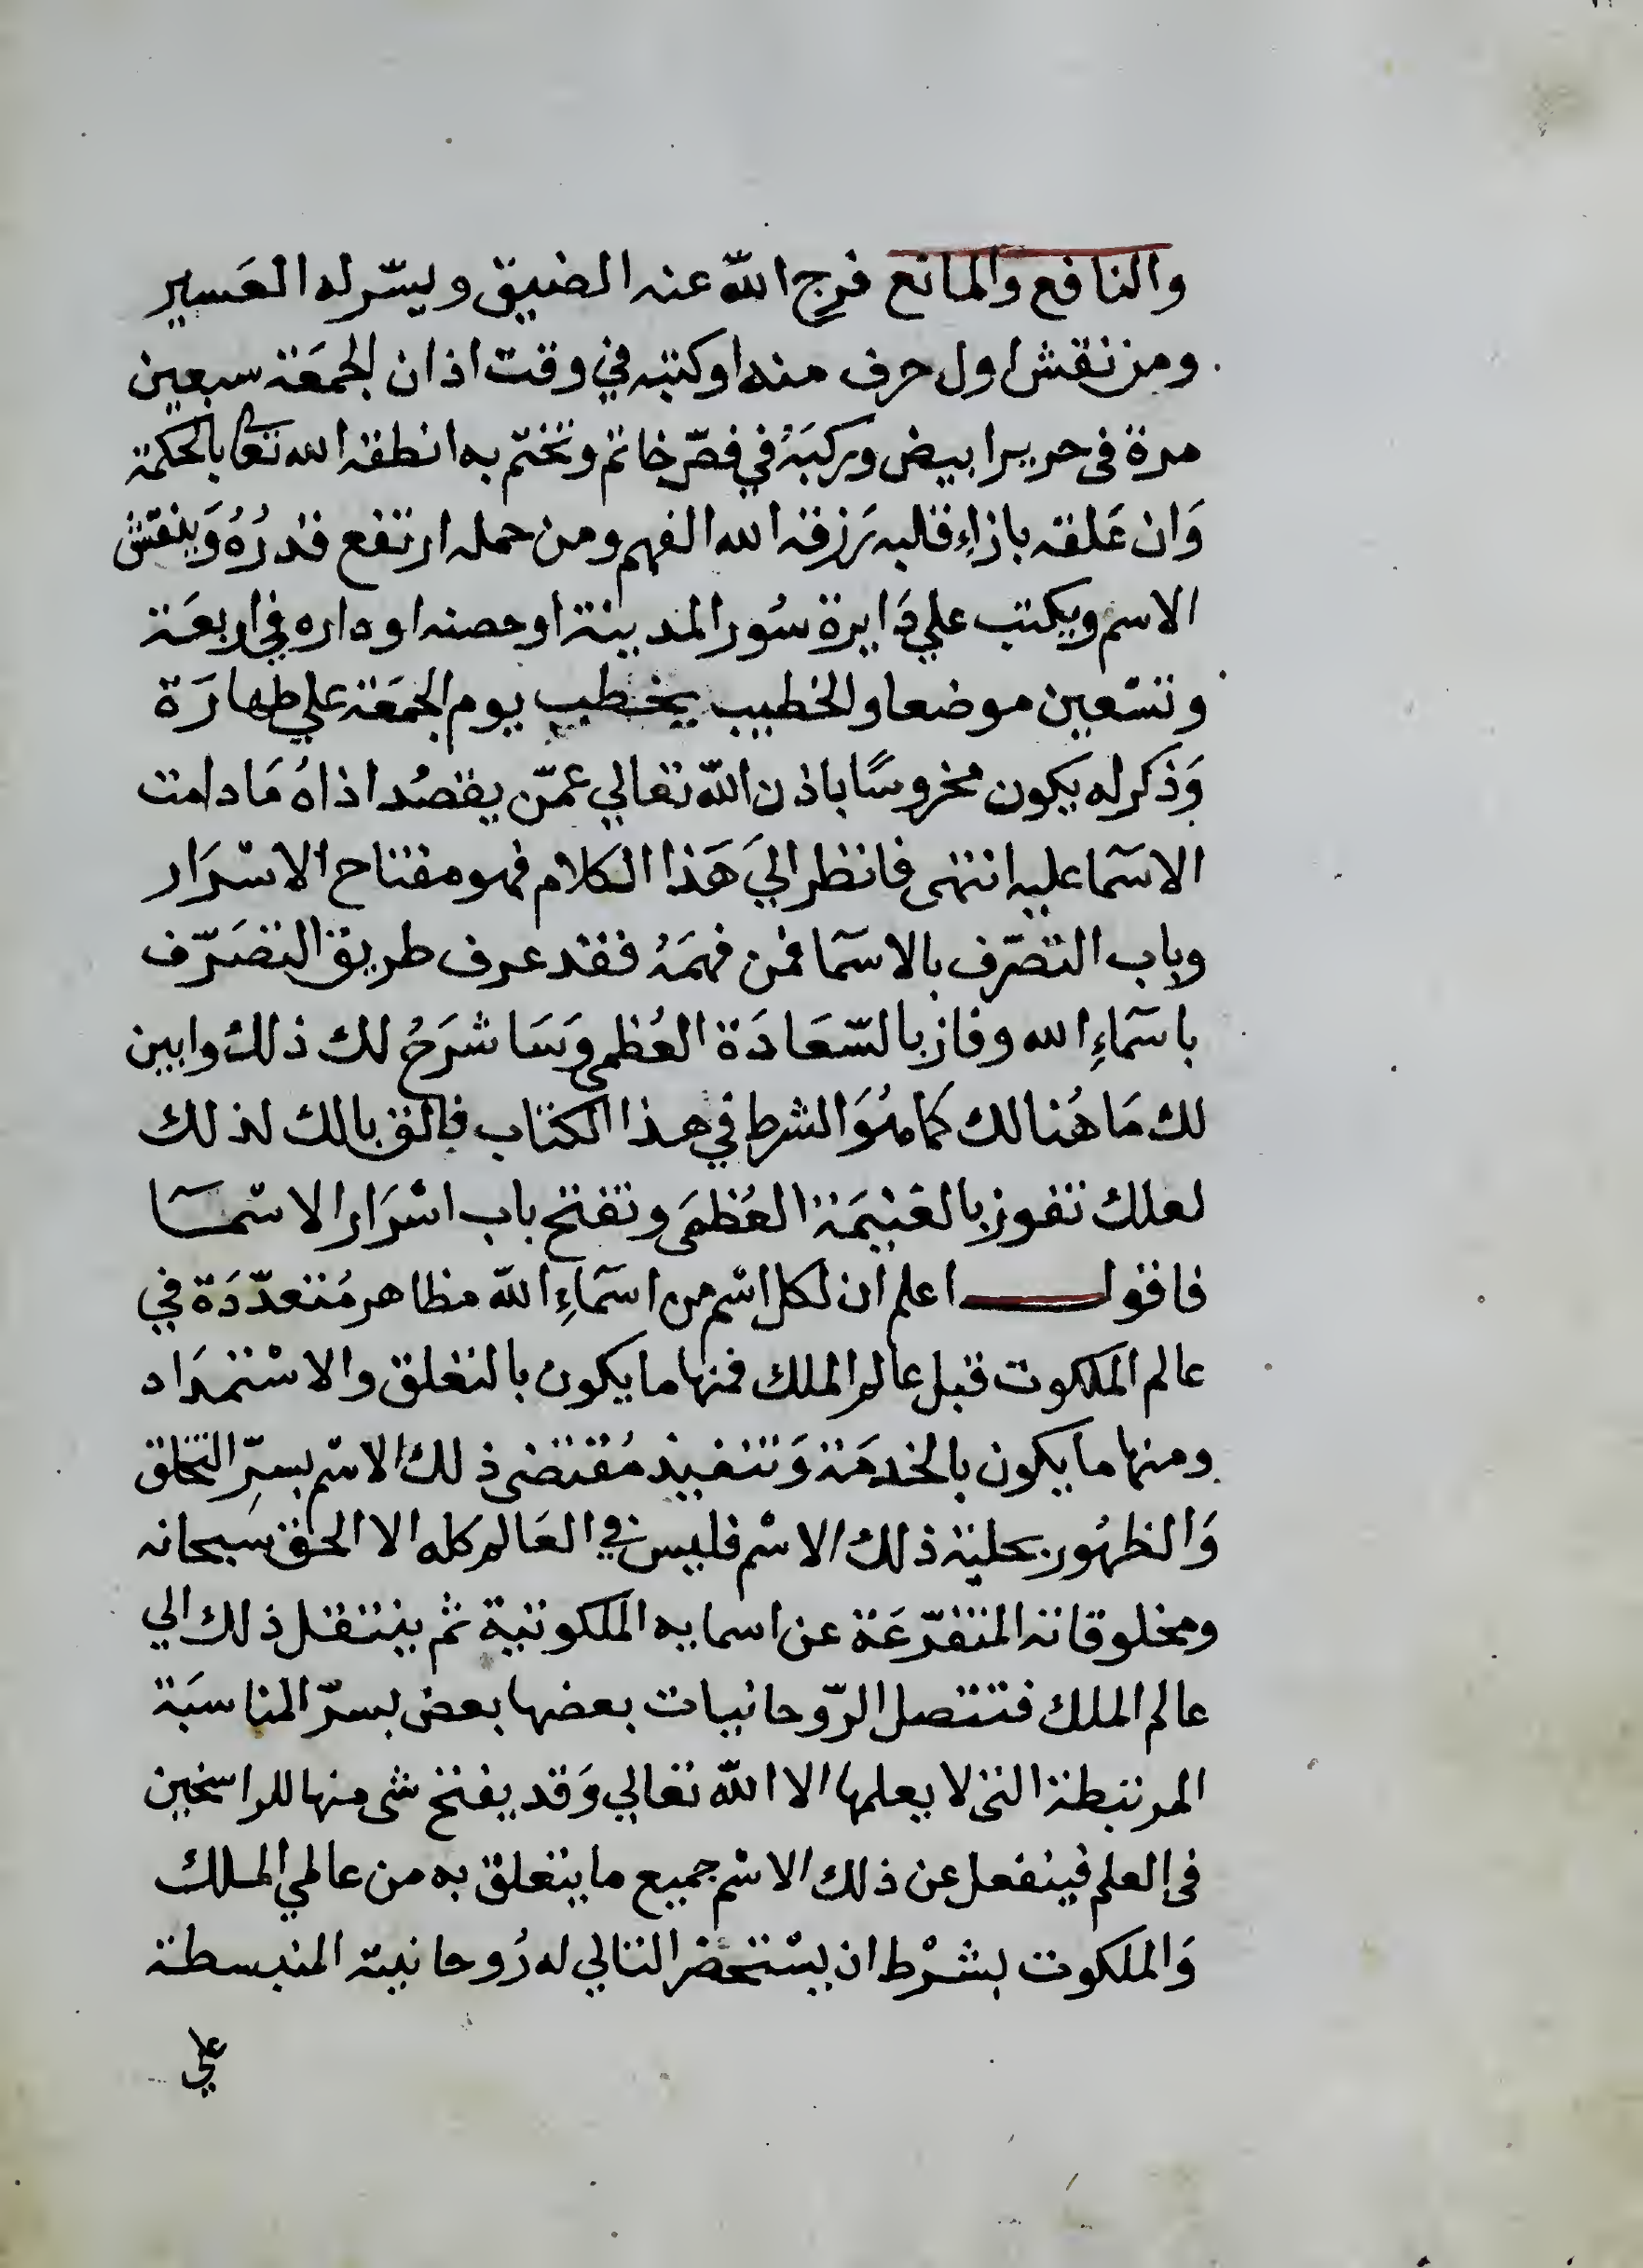 والنافع والمانع فرج الله عنه الضيق ويسّر له العَسير
ومن نقش اول حرف منه او كتبه في وقت اذان الجمَعة سبعين
مرة فى حرير ابيض وركبَهُ في فصّ خاتم وتختّم به انطقه الله تعا بالحكمة
وَان عَلقه بازاءِ قلبه رَزقه الله الفهم ومن حمله ارتفع قدرُهُ وَينقش
الاسم ويكتب علي دَايرة سُور المدينة او حصنه او داره في اربعَة
وتسّعين موضعا والخطيب يخطب يوم الجمَعة علي طهارَة
وَذكر له يكون محروسًا باذن الله تعالي عمّن يقصُد اذاهُ مَا دامت
الاسَمآ عليه انتهى فانظر اليَ هَذا الكلام فهو مفتاح الاسْرَار
وباب التصّرف بالاسَمآ فمن فهمَهُ فقد عرف طريق التصَرّف
باسَمآءِ الله وفاز بالسّعَادَة العُظمى وَسَاشرَحُ لك ذلك وابين
لك مَا هُنالك كما هُوَ الشرط في هذا الكتاب فالق بالك لذلك
لعلك تفوز بالغَنيمَة العُظمَى وتفتح باب اسْرَار الاسْمَــآ
فاقول اعلم ان لكل اسْم من اسَمآءِ الله مظاهر مُتعدّدَة في
عالم الملكوت قبل عالم الملك فمنها ما يكون بالتعلق والاسْتمدَاد
ومنها ما يكون بالخدمَة وَتنفيذ مُقتضى ذلك الاسْم بسِرّ التخلق
وَالظهُور بحلية ذلك الاسْم فليس في العَالم كله الا الحق سَبحانه
ومخلوقاته المتفرّعَة عن اسمايه الملكوتية ثم ينتقل ذلك الي
عالم الملك فتتصل الرّوحانيات بعضها بعض بسرّ المناسَبة
المرتبطة التى لا يعلمها الا الله تعالي وَقد يفتح شى منها للراسخين
فى العلم فينفعل عن ذلك الاسْم جميع ما يتعلق به من عالمي الملك
وَالملكوت بشَرْط ان يسْتحضر التالي له رُوحانيته المنبسطة
علي